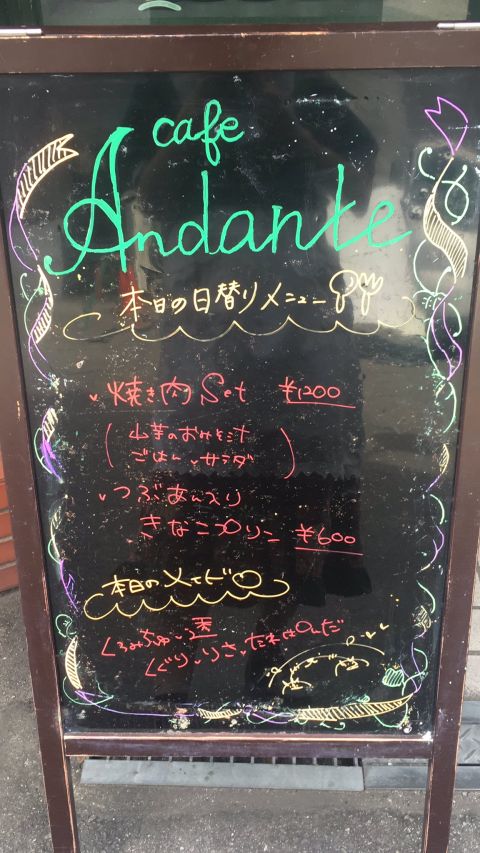 cafe
Andante
本日の日替りメニュー
焼き肉 Set ¥1200
(山芋のおみそ汁
ごはん、サラダ)
つぶあん入り
きなこプリン ¥600
本日のメイド